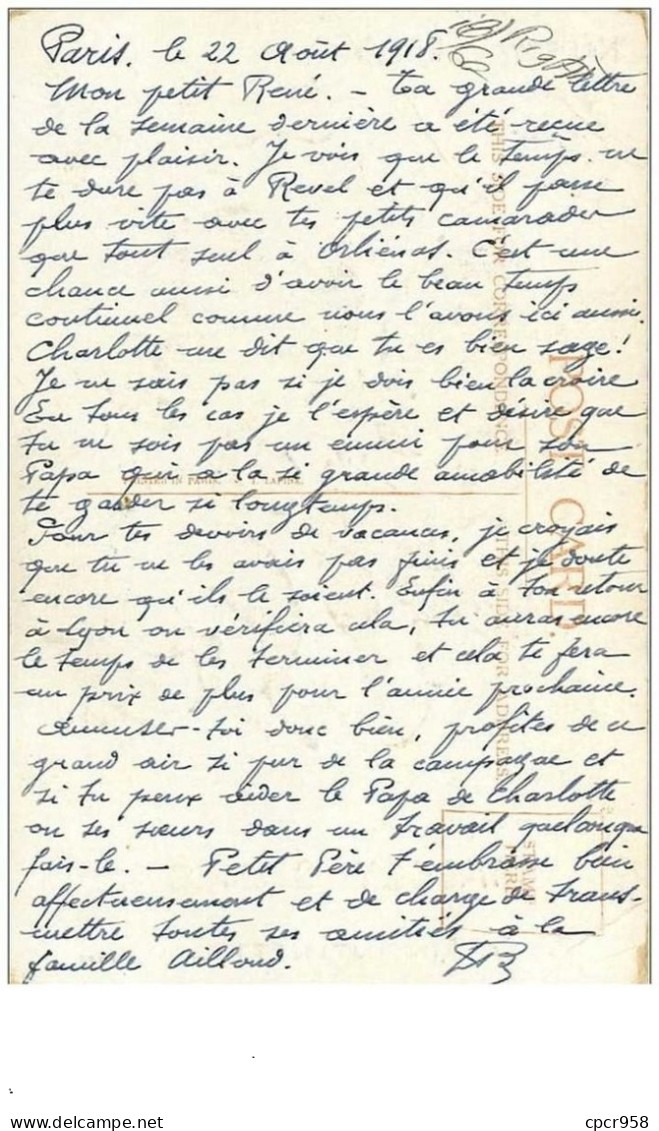 Paris. le 22 Août 1918.
Mon petit René. - Ta grande lettre
de la semaine dernière a été reçue
avec plaisir. Je vois que le temps ne
te dure pas à Revel et qu'il passe
plus vite avec tes petits camarades
que tout seul à Orliénas. C'est une
chance aussi d'avoir le beau temps
continuel comme nous l'avons ici aussi.
Charlotte me dit que tu es bien sage!
Je ne sais pas si je dois bien la croire
En tous les cas je l'espère et désire que
tu ne sois pas un ennui pour son
Papa qui a la si grande amabilité de
te garder si longtemps.
Pour tes devoirs de vacances, je croyais
que tu ne les avais pas finis et je doute
encore qu'ils le soient. Enfin à ton retour
à Lyon on vérifiera cela, tu auras encore
le temps de les terminer et cela te fera
un prix de plus pour l'année prochaine.
Amuses-toi donc bien, profites de ce
grand air si pur de la campagne et
si tu peux aider le Papa de Charlotte
ou ses sœurs dans un travail quelconque
fais-le. - Petit Père t'embrasse bien
affectueusement et de charge de trans-
mettre toutes ses amitiés à la
famille Ailloud.
POST CARD
THIS SIDE FOR CORRESPONDENCE
THIS SIDE FOR ADDRESS
PRINTED IN PARIS. I. LAPINA.
STAMP
cpcr958